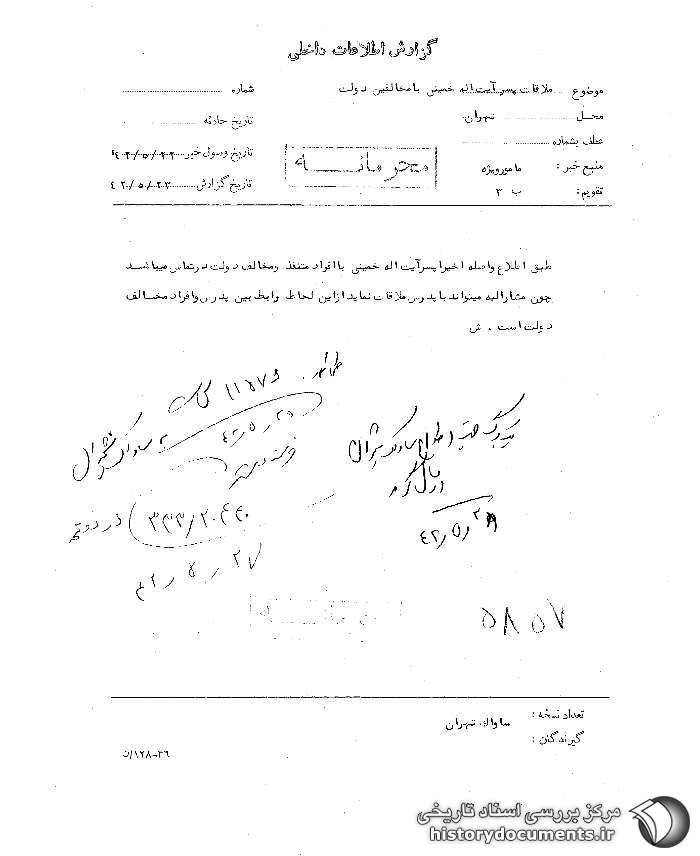 گزارش اطلاعات داخلی
موضوع ملاقات پسر آیت اله خمینی با مخالفین دولت
شماره
محل تهران
تاریخ حادثه
عطف بشماره
تاریخ وصول خبر ۴۲/۵/۲۲
منبع خبر : مامور ویژه
تاریخ گزارش ۴۲/۵/۲۳
تقویم : ب ۳
محرمانه
طبق اطلاع واصله اخیرا پسر آیت اله خمینی با افراد متنفذ و مخالف دولت در تماس میباشد
چون مشارالیه میتواند با پدرش ملاقات نماید از این لحاظ رابط بین پدرش و افراد مخالف
دولت است . ش
۱۱۵۷۶
۴۲/۵/۲۸
۳۳۳/۲۰۶۲۰
۲۷ ر ۵ ر ۴۲
۵۸۵۷
تعداد نسخه :
گیرندگان : ساواک تهران
۳۶-۱۲۸/ن
مرکز بررسی اسناد تاریخی
historydocuments.ir